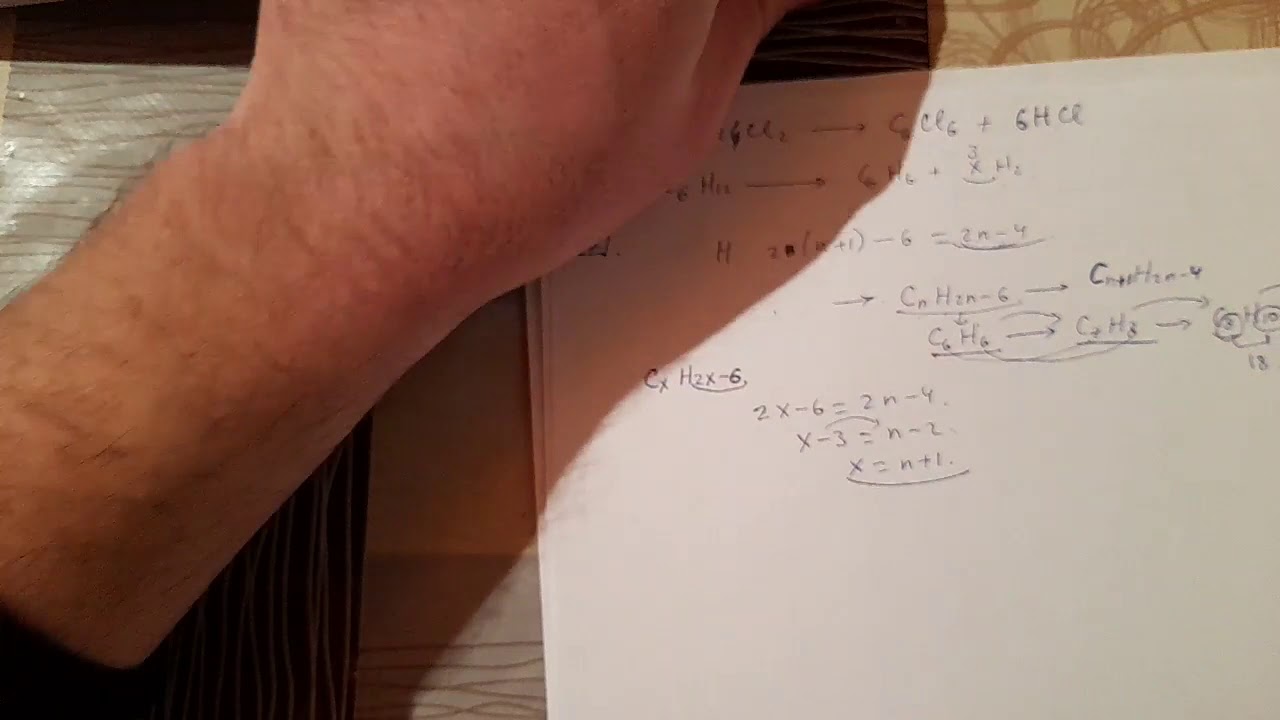 6Cl₂ → C₆Cl₆ + 6HCl
₆H₁₂ → C₆H₆ + x H₂
3
H (n+1) - 6 = 2n-4
→ CnH2n-6 → Cn+1H2n-4
C₆H₆ → C₇H₈ →
18
CxH2x-6
2x-6 = 2n-4.
x-3 = n-2.
x = n+1.